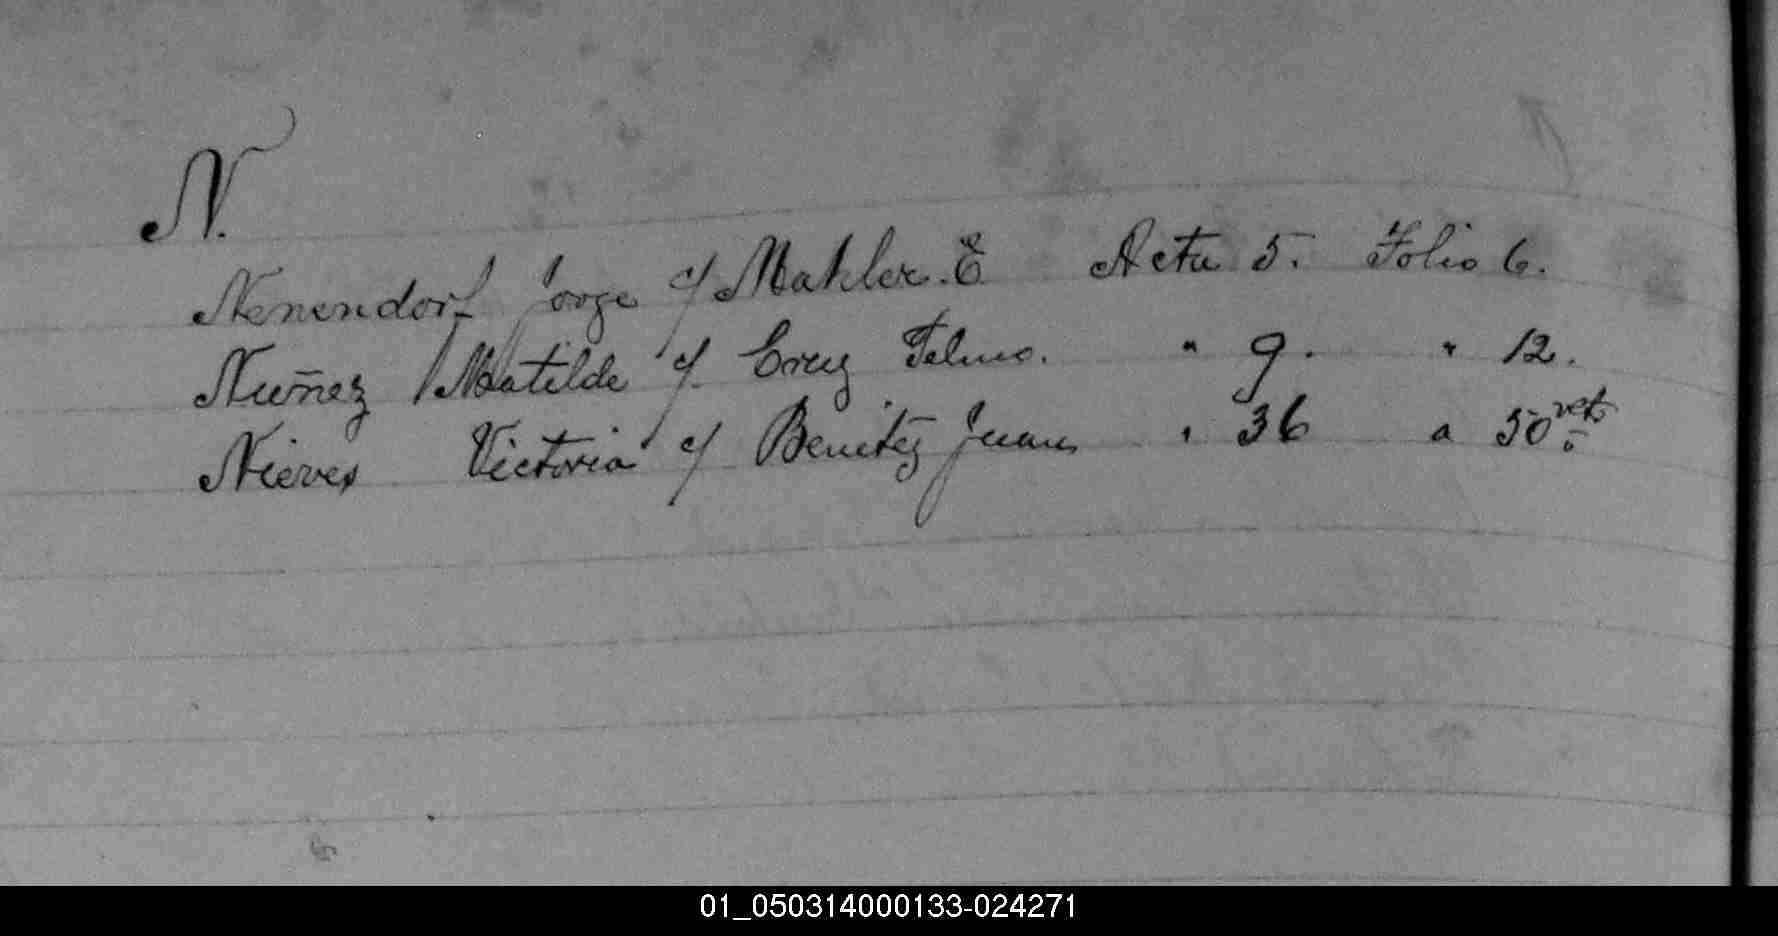 N.
Nenendorf Jorge c/ Mahler. E Acta 5. Folio 6.
Nuñez Matilde c/ Cruz Telmo. " 9. " 12.
Nieves Victoria c/ Benitez Juan " 36 " 50 vto
01_050314000133-024271